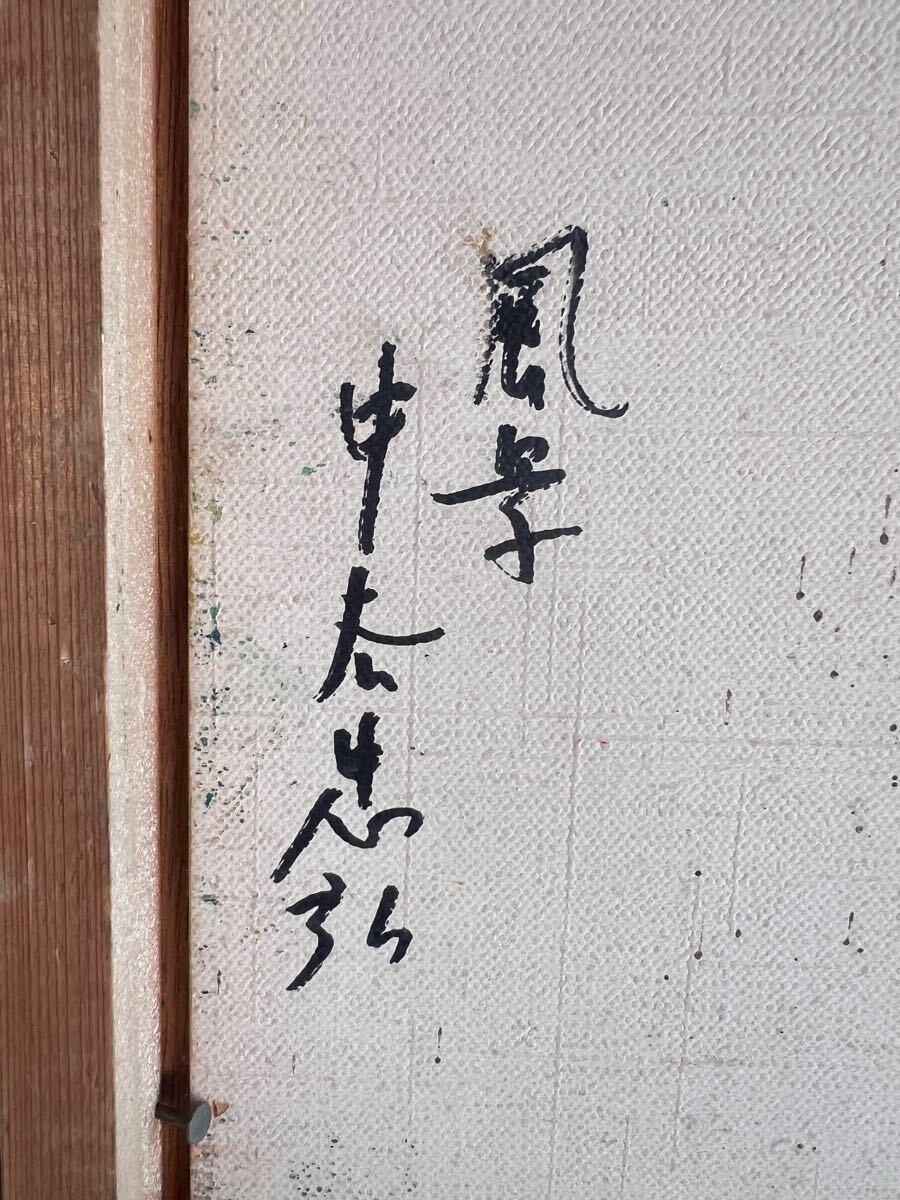 風景
中太忠弘